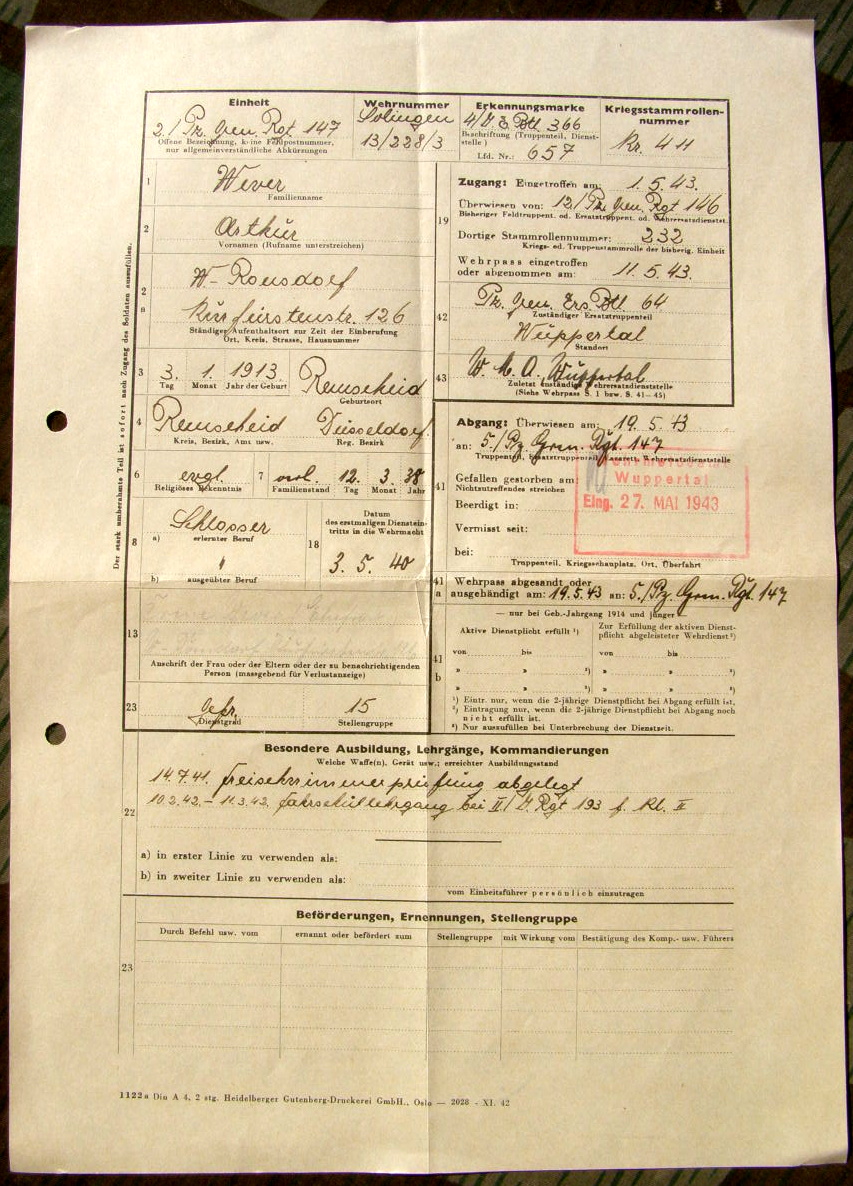 Einheit
2./ Pz. Gren. Rgt. 147
Offene Bezeichnung, keine Feldpostnummer,
nur allgemeinverständliche Abkürzungen
Wehrnummer
Solingen
13/228/3
Erkennungsmarke
366
Beschriftung (Truppenteil, Dienst-
stelle)
Lfd. Nr.: 657
Kriegsstammrollen-
nummer
Kr. 411
Der stark umrahmte Teil ist sofort nach Zugang des Soldaten auszufüllen.
1 Wever
Familienname
2 Arthur
Vornamen (Rufname unterstreichen)
2a W.-Ronsdorf
Kurfürstenstr. 126
Ständiger Aufenthaltsort zur Zeit der Einberufung
Ort, Kreis, Strasse, Hausnummer
3 3. 1. 1913. Remscheid
Tag Monat Jahr der Geburt Geburtsort
4 Remscheid Düsseldorf
Kreis, Bezirk, Amt usw. Reg. Bezirk
6 evgl. 7 verh. 12. 3. 38
Religiöses Bekenntnis Familienstand Tag Monat Jahr
8 Schlosser
a) erlernter Beruf
"
b) ausgeübter Beruf
18 Datum
des erstmaligen Dienstein-
tritts in die Wehrmacht
3. 5. 40
13
Anschrift der Frau oder der Eltern oder der zu benachrichtigenden
Person (massgebend für Verlustanzeige)
23 Gefr. 15
Dienstgrad Stellengruppe
19 Zugang: Eingetroffen am: 1. 5. 43.
Überwiesen von: 12./ Pz. Gren. Rgt 146
Bisheriger Feldtruppent. od. Ersatztruppent. od. Wehrersatzdienstst.
Dortige Stammrollennummer: 232
Kriegs- od. Truppenstammrolle der bisherig. Einheit
Wehrpass eingetroffen
oder abgenommen am: 11. 5. 43.
42 Pz. Gren. Ers. Btl. 64
Zuständiger Ersatztruppenteil
Wuppertal
Standort
43 W. M. A. Wuppertal
Zuletzt zuständige Wehrersatzdienststelle
(Siehe Wehrpass S. 1 bzw. S. 41–45)
Abgang: Überwiesen am: 19. 5. 43
an: 5./ Pz. Gren. Rgt. 147
Truppenteil, Ersatztruppenteil, Lazarett, Wehrersatzdienststelle
41 Gefallen gestorben am:
Nichtzutreffendes streichen
Beerdigt in:
Vermisst seit:
bei:
Truppenteil, Kriegsschauplatz, Ort, Überfahrt
Wuppertal
Eing. 27. MAI 1943
41a Wehrpass abgesandt oder
ausgehändigt am: 19. 5. 43 an: 5./ Pz. Gren. Rgt. 147
— nur bei Geb.-Jahrgang 1914 und jünger —
41b Aktive Dienstpflicht erfüllt ¹) Zur Erfüllung der aktiven Dienst-
pflicht abgeleisteter Wehrdienst²)
von bis von bis
" " ²) " " ³)
" " ²) " " ³)
¹) Eintr. nur, wenn die 2-jährige Dienstpflicht bei Abgang erfüllt ist.
²) Eintragung nur, wenn die 2-jährige Dienstpflicht bei Abgang noch
nicht erfüllt ist.
³) Nur auszufüllen bei Unterbrechung der Dienstzeit.
Besondere Ausbildung, Lehrgänge, Kommandierungen
Welche Waffe(n), Gerät usw.; erreichter Ausbildungsstand
22 14.7.41. Freischwimmerprüfung abgelegt
10.2.42. – 11.3.42. Fahrschullehrgang bei II/ J. Rgt 193 f. Kl. II
a) in erster Linie zu verwenden als:
b) in zweiter Linie zu verwenden als:
vom Einheitsführer persönlich einzutragen
Beförderungen, Ernennungen, Stellengruppe
Durch Befehl usw. vom ernannt oder befördert zum Stellengruppe mit Wirkung vom Bestätigung des Komp.- usw. Führers
23
1122a Din A 4, 2 stg. Heidelberger Gutenberg-Druckerei GmbH., Oslo — 2028 - XI. 42